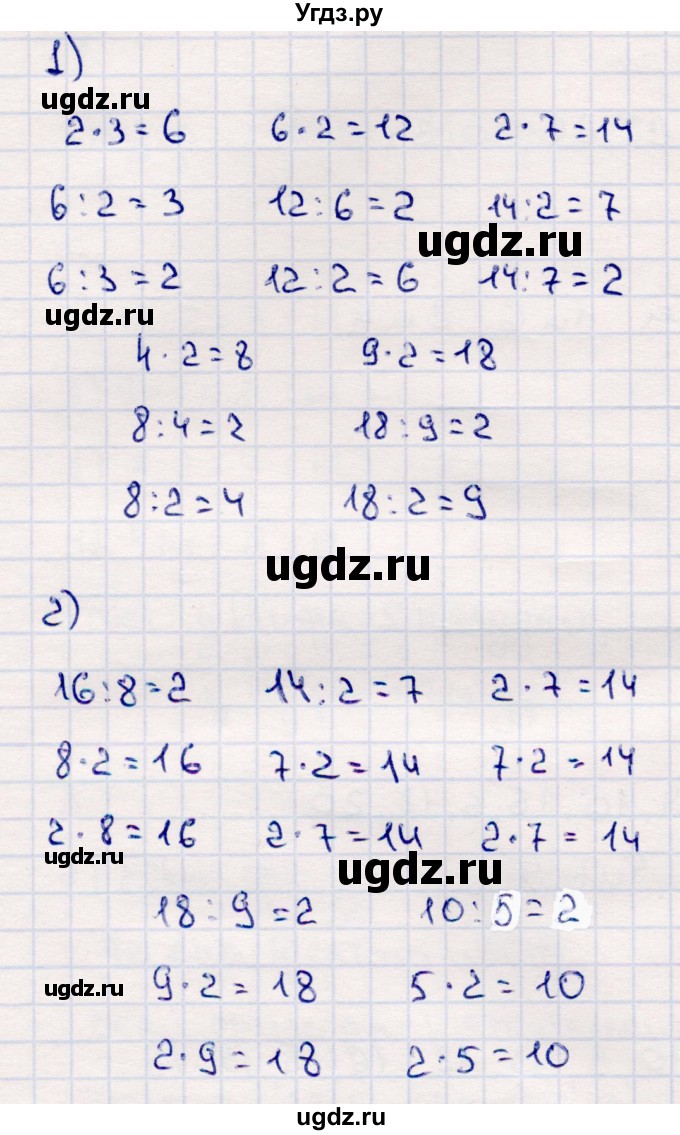 Угдз.ру
1)
ugdz.ru
2·3=6 6·2=12 2·7=14
6:2=3 12:6=2 14:2=7
ugdz.ru
6:3=2 12:2=6 14:7=2
ugdz.ru
4·2=8 9·2=18
8:4=2 18:9=2
8:2=4 18:2=9
ugdz.ru
2)
16:8=2 14:2=7 2·7=14
8·2=16 7·2=14 7·2=14
2·8=16 2·7=14 2·7=14
ugdz.ru ugdz.ru
18:9=2 10:5=2
ugdz.ru 9·2=18 5·2=10
2·9=18 2·5=10
ugdz.ru